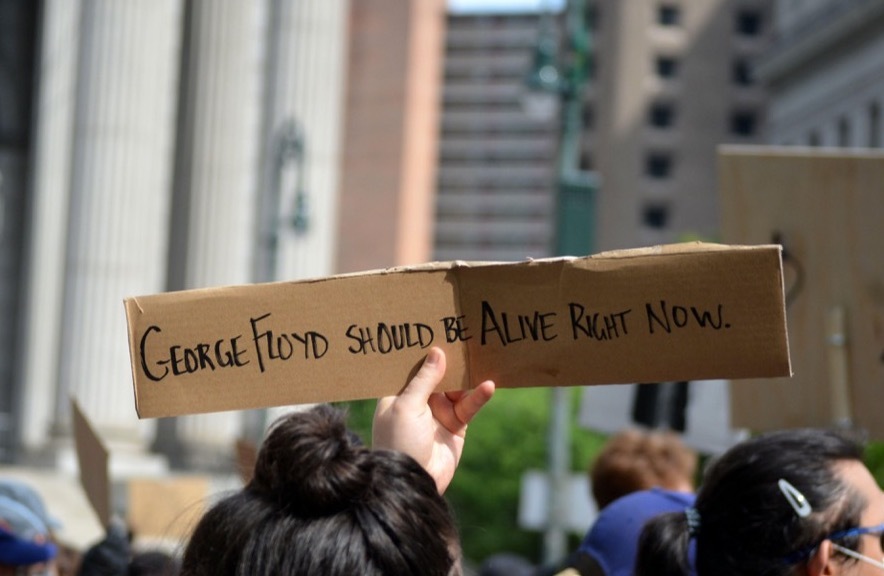 George Floyd should be Alive Right Now.